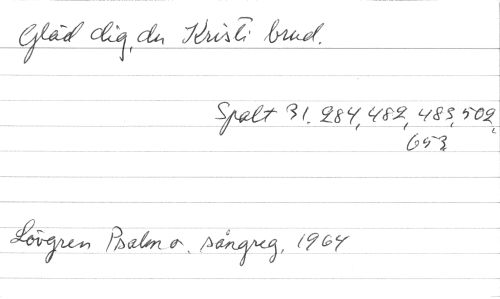 Gläd dig, du Kristi brud.
Spalt 31. 284, 482, 483, 502,
653
Lövgren Psalm o. sångreg. 1964